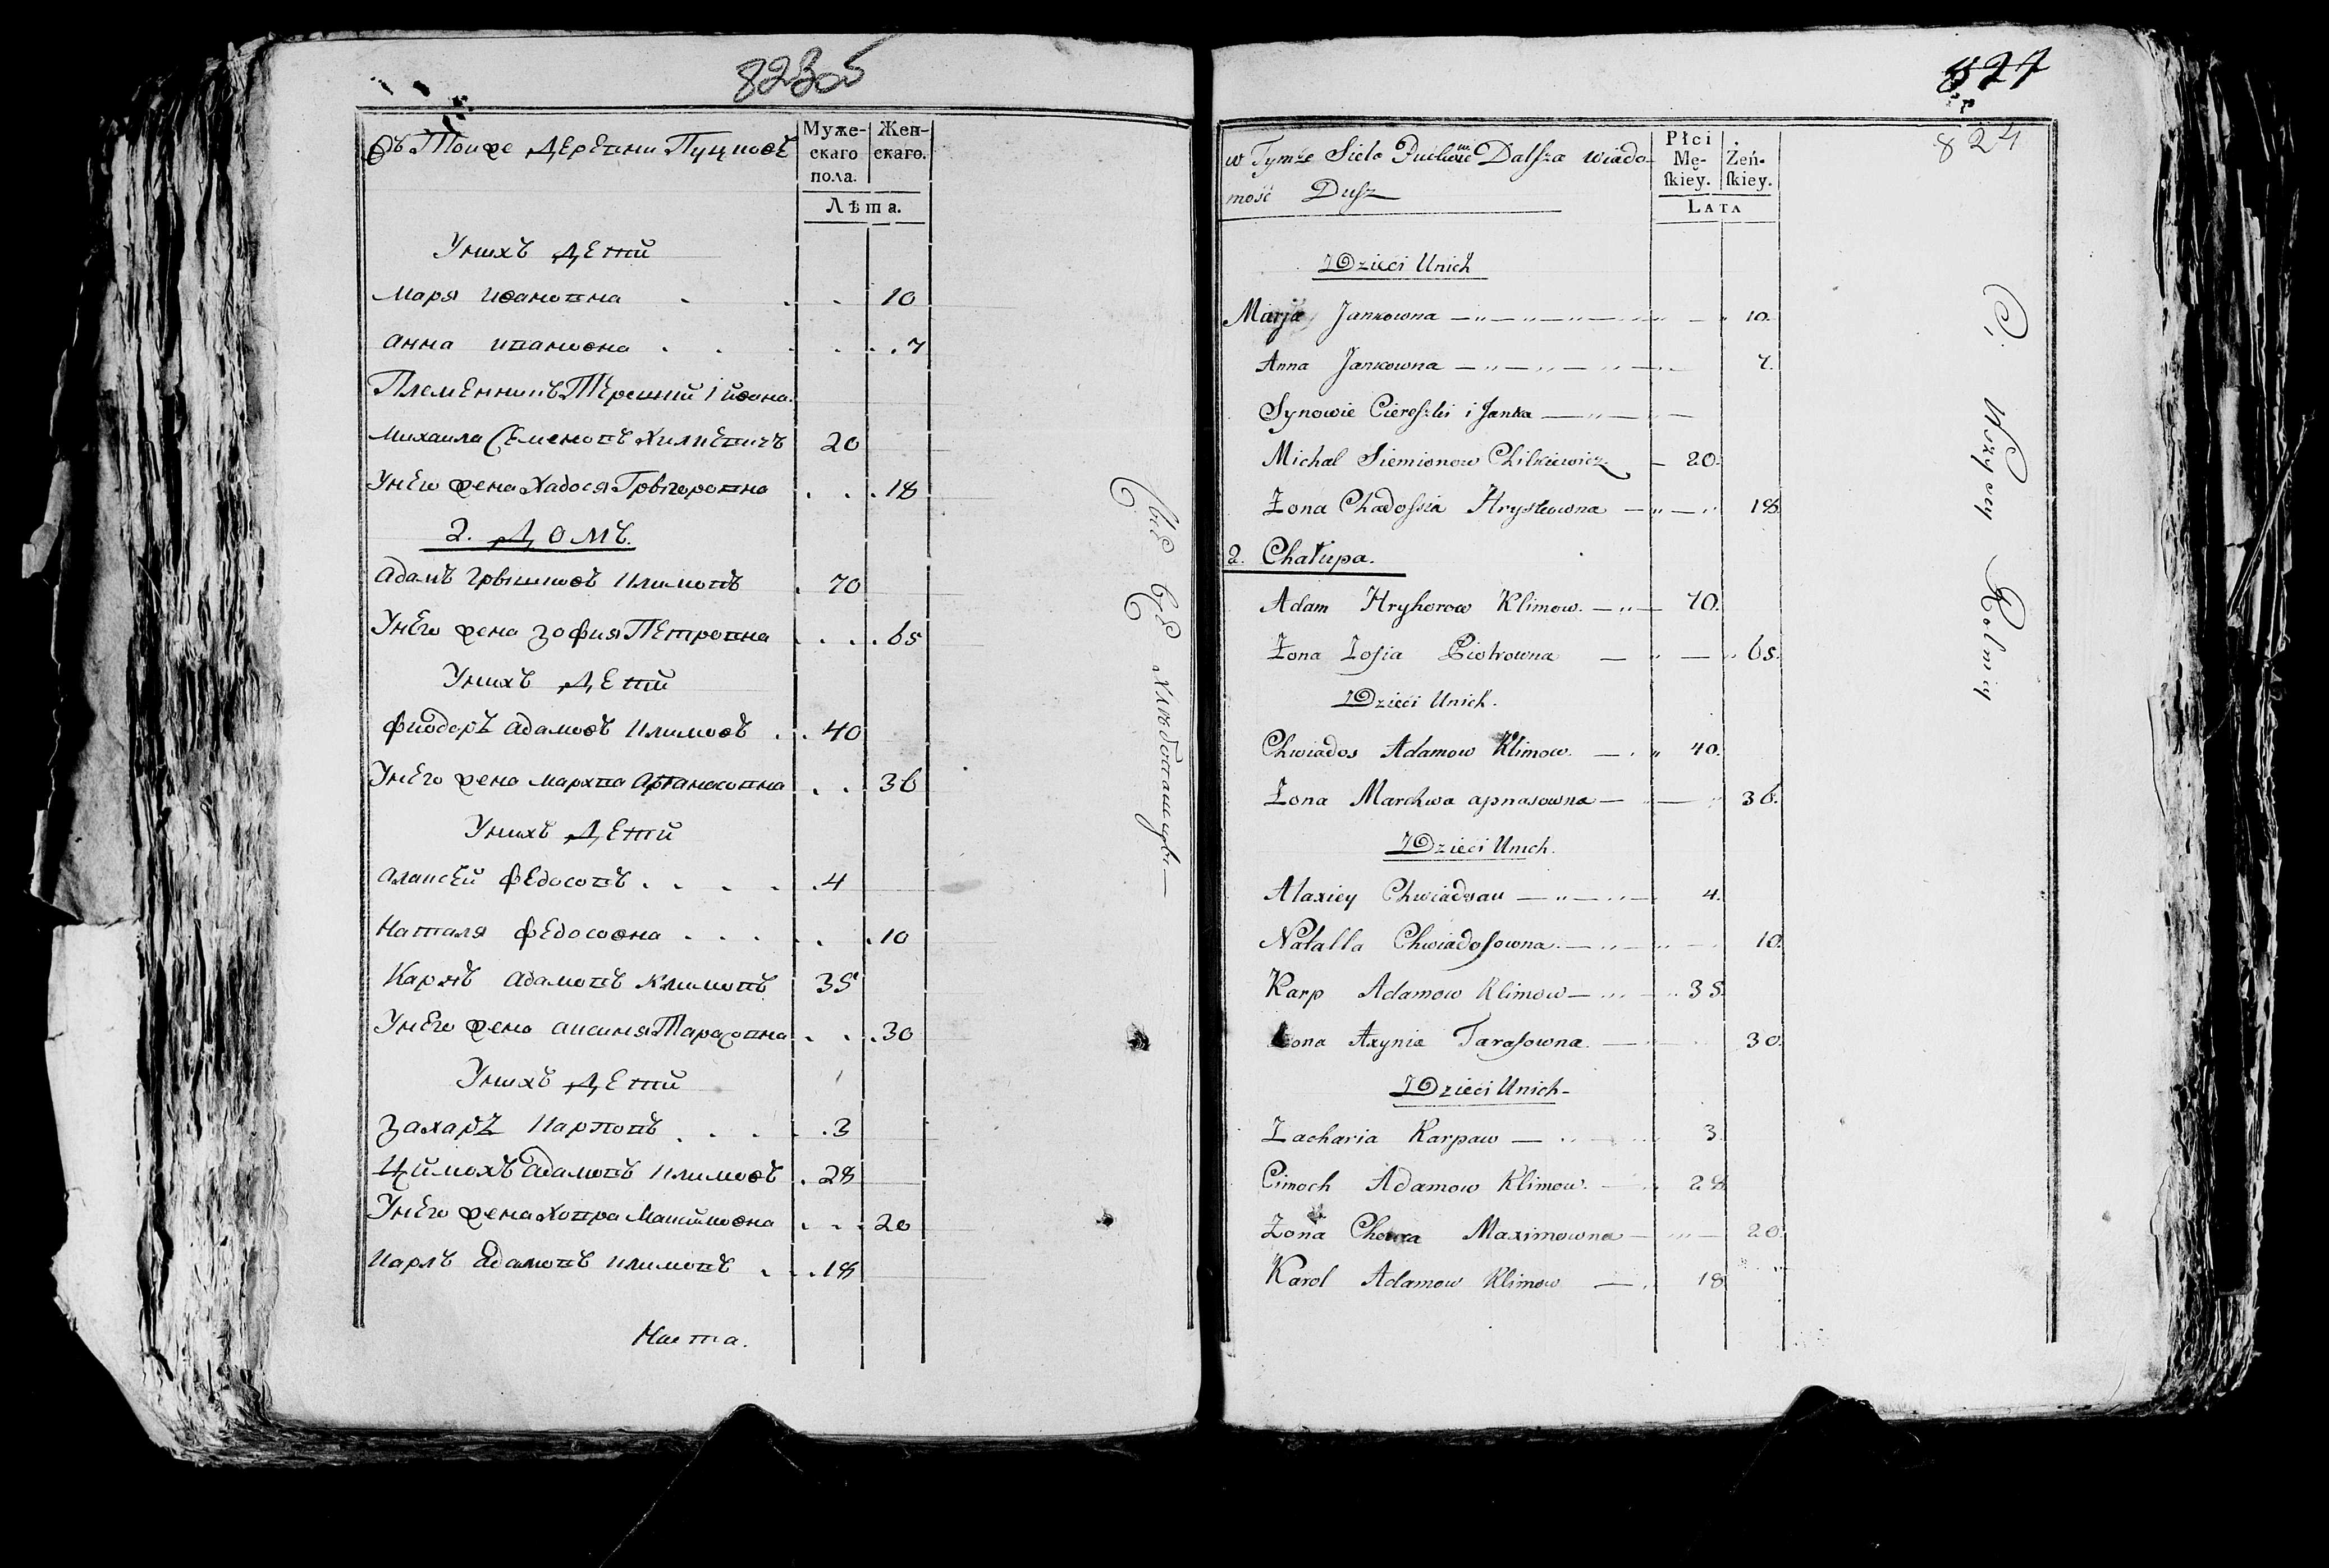 82305
Въ Тойже деревни Пуцковѣ
Муже-
скаго
пола.
Жен-
скаго.
Лѣта.
Унихъ дети
Маря Ивановна . . . 10
Анна Ивановна . . . . 7
Племенникъ Терешки і Ивана
Михаила Семеновъ Хилкевичъ 20
Унего жена Хадося Грыгоровна . . . 18
2. Домъ.
Адамъ Грышковъ Климовъ . 70
Унего жена Зофия Петровна . . . . 65
Унихъ дети
Фиодоръ Адамовъ Климовъ . . 40
Унего жена Мархва Афанасовна . . 36
Унихъ дети
Алаксей Федосовъ . . . . . 4
Наталя Федосовна . . . . . 10
Карпъ Адамовъ Климовъ 35
Унего жена Аксиня Тарасовна . . . 30
Унихъ дети
Захаръ Карповъ . . . . 3
Цимохъ Адамовъ Климовъ . 28
Унего жена Ховра Максимовна . . . 20
Карлъ Адамовъ Климовъ . . 18
Всѣ хлѣбопашцы
827
824
w Tymże Siele Dalsza wiado-
mość Dusz
Płci
Mę-
skiey.
Żeń-
skiey.
LATA
Dzieci Unich
Marja Jankowna 10.
Anna Jankowna 7.
Synowie Cieroszki i Janka
Michal Siemionow Chilkiewicz 20.
Żona Chadossia Hryszkowna 18
2. Chałupa.
Adam Hryhorow Klimow. 70.
Żona Zofia Piotrowna 65.
Dzieci Unich.
Chwiados Adamow Klimow. 40.
Żona Marchwa apnasowna 36.
Dzieci Unich.
Alaxiey Chwiadosau 4.
Natalla Chwiadosowna. 10.
Karp Adamow Klimow 35
Żona Axynia Tarasowna. 30.
Dzieci Unich
Zacharia Karpaw 3.
Cimoch Adamow Klimow. 28
Żona Chowra Maximowna 20.
Karol Adamow Klimow 18
Ci Wszyscy Rolnicy